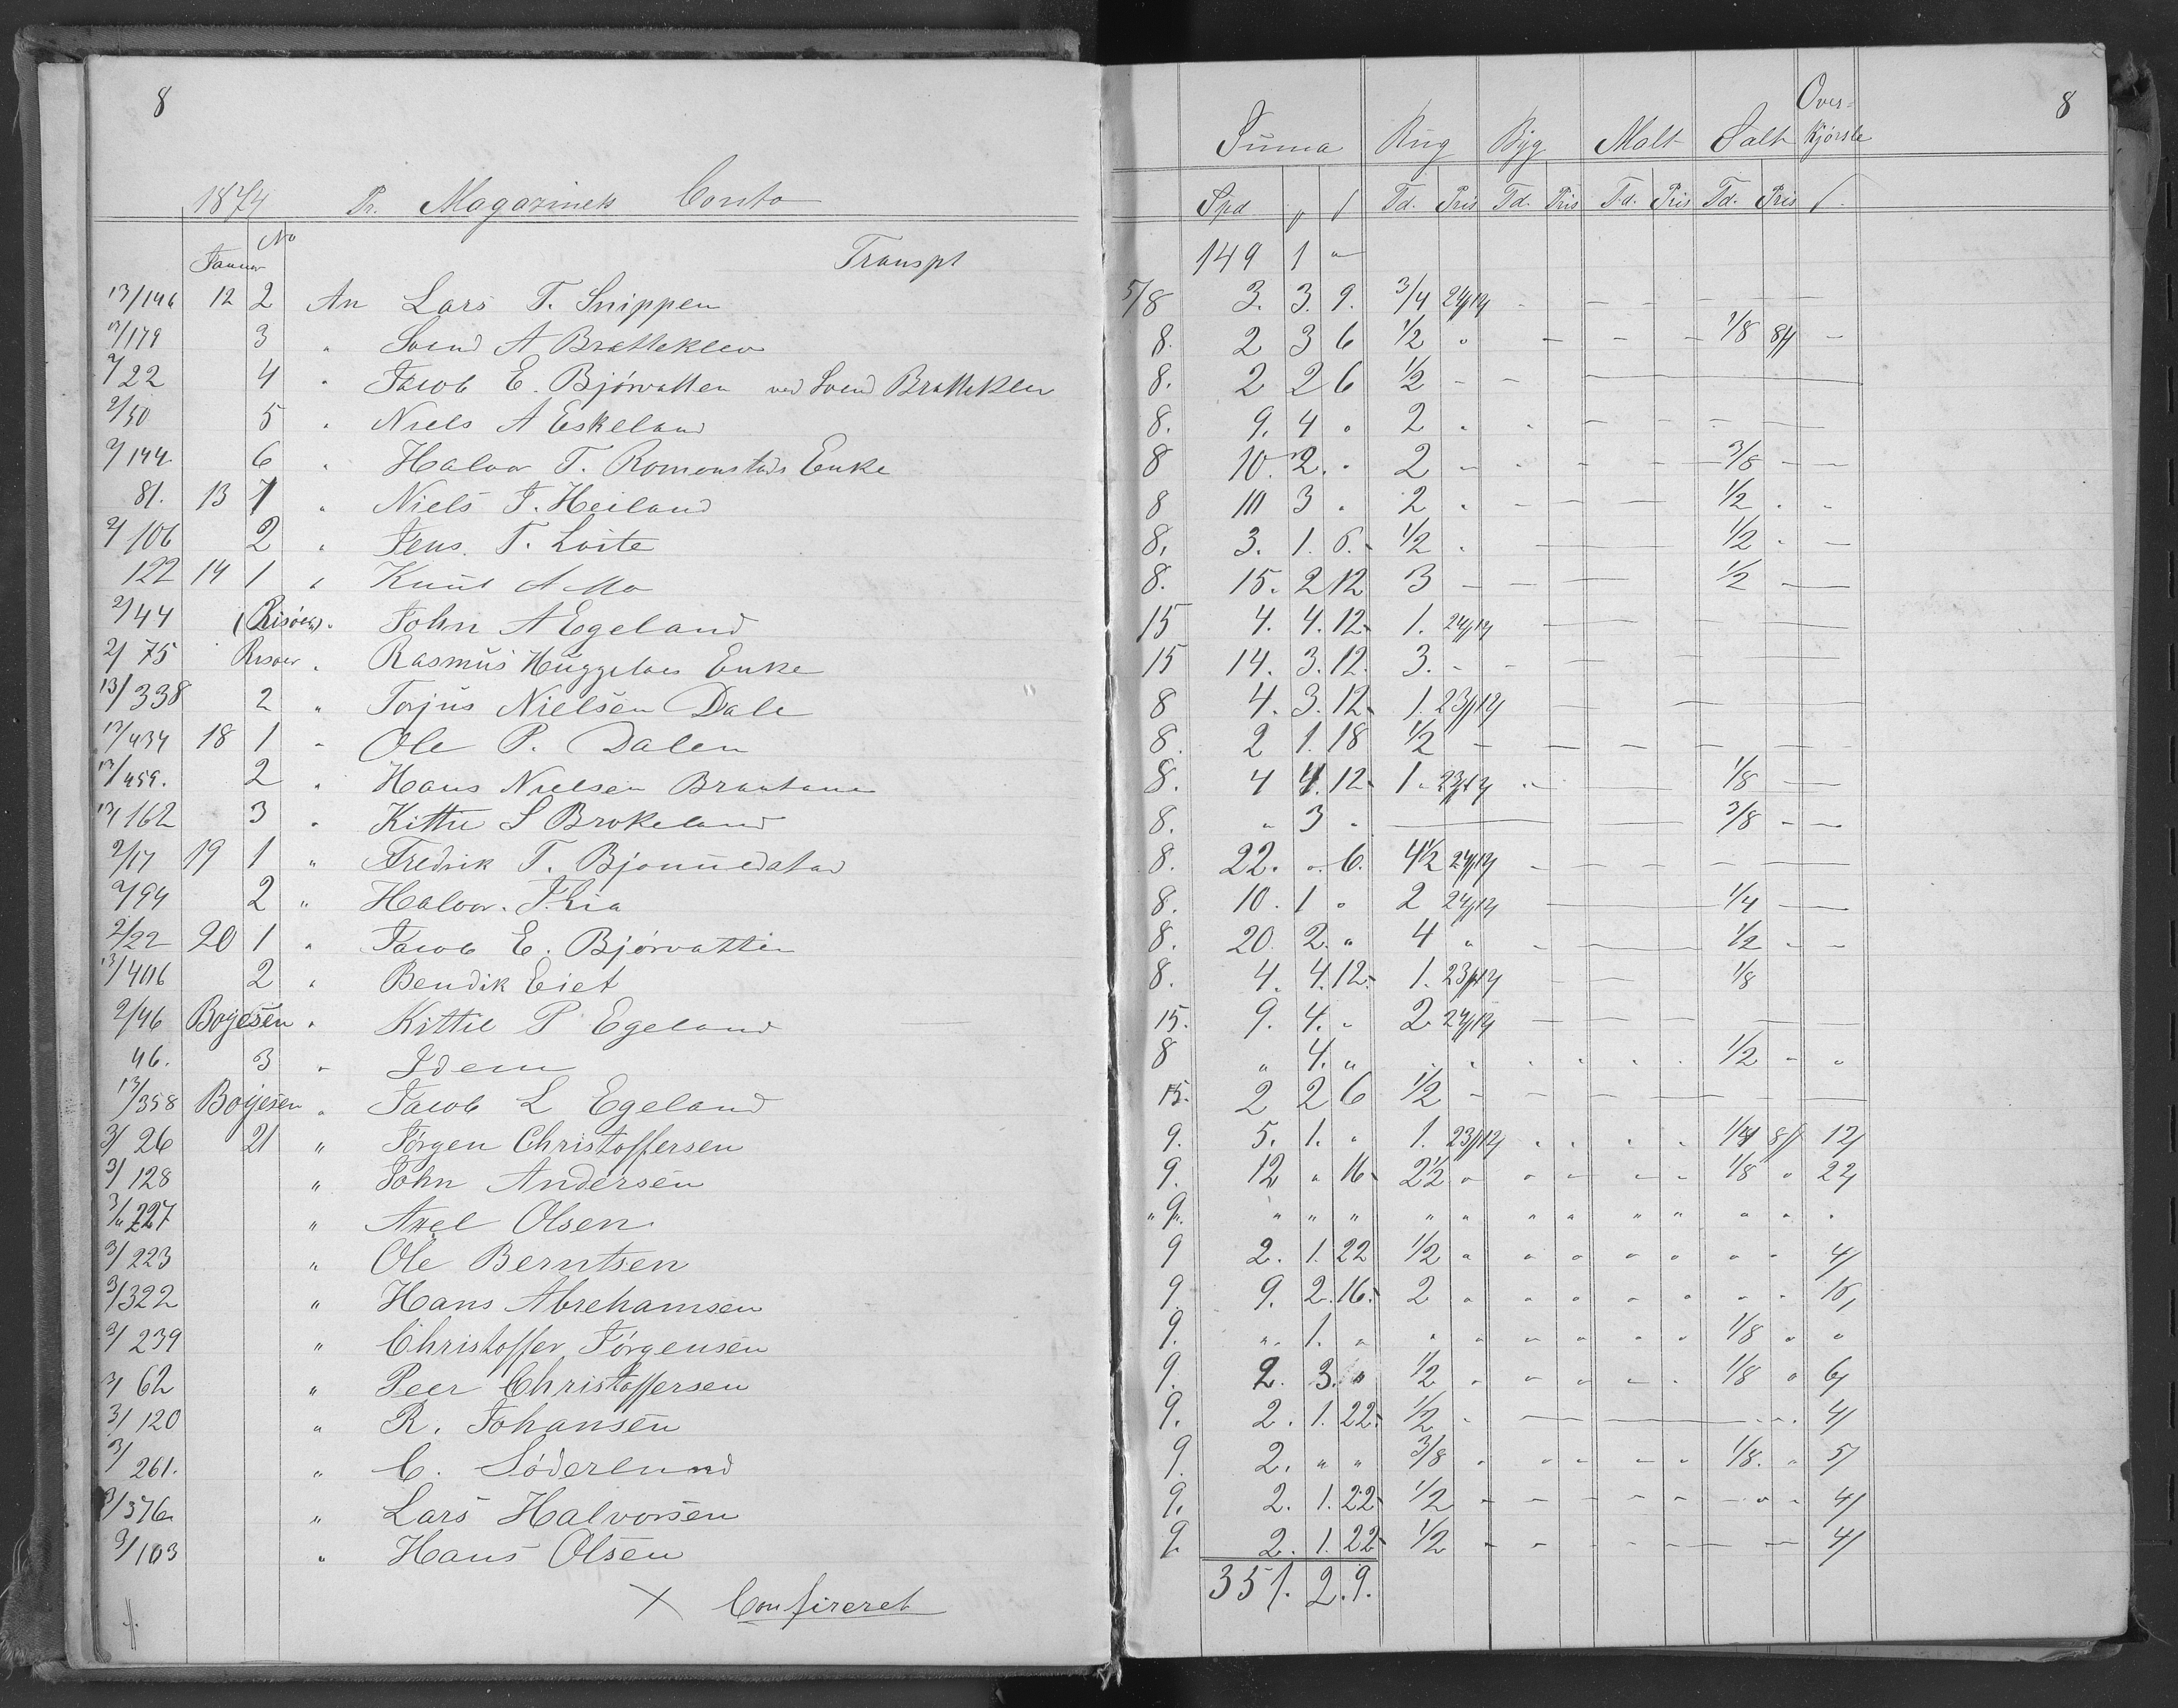 8
1874 Pr. Magazinets Conto
Januar No Transpt
13/146 12 2 An Lars T. Snippen
13/179 3 " Svend A Bratteklev
2/22 4 " Jacob E. Bjórvatten ved Svend Bratteklev
2/50 5 " Niels A Eskeland
2/144 6 " Halvor T. Romonstads Enke
81. 13 1 " Niels T. Heiland
2/106 2 " Jens. T. Loite
122 14 1 " Knud A Mo
2/44 (Risóer) " John A Egeland
2/75 Risoer " Rasmus Huggelaes Enke
13/338 2 " Torjus Nielsen Dale
13/434 18 1 " Ole P. Dalen
13/459. 2 " Hans Nielsen
13/162 3 " Kittil S Brokeland
2/17 19 1 " Fredrik T.
2/94 2 " Halvor. T. Lia
2/22 20 1 " Jacob E. Bjórvatten
13/406 2 " Bendik Eiet
2/46 Boyesen " Kittil P Egeland
46. 3 " Idem
13/358 Boyesen " Jacob L Egeland
3/26 21 " Jórgen Christoffersen
3/128 " John Andersen
3/227 " Axel Olsen
3/223 " Ole Berntsen
3/322 " Hans Abrehamsen
3/239 " Christoffer Jórgensen
3/62 " Peer Christoffersen
3/120 " R. Johansen
3/261. " C. Sóderlund
3/376 " Lars Halvorsen
3/103 " Hans Olsen
X Confireret
8
Over-
Suma Rug Byg Malt Salt kjórsle
Spd Td. Pris Td. Pris Td. Pris Td. Pris
149 1 "
5/8 3. 3. 9. 3/4 24/12 - - - - -
8. 2 3 6 1/2 " - - - 1/8 8 -
8. 2 2 6 1/2 - -
8. 9. 4 " 2 " " - - - -
8 10. 2. " 2 - - - - 3/8 - -
8 10 3 " 2 " - - - 1/2 " "
8. 3. 1. 6. 1/2 " - - 1/2 " -
8. 15. 2 12 3 - - - 1/2 -
15 4. 4. 12 1. 24/12 - -
15 14. 3. 12. 3. - - - -
8 4. 3. 12 1. 23/12 - - -
8. 2 1. 18 1/2 - - - - - -
8. 4 4. 12 1 " 23/12 - - 1/8 -
8. " 3 " - - 3/8 - -
8. 22. " 6. 4 1/2 24/12 - - - - -
8. 10. 1 " 2 24/12 - 1/4 -
8. 20. 2. " 4 " - - - 1/2 - -
8. 4. 4. 12. 1. 23/12 - - 1/8
15. 9. 4. " 2 24/12 - - - - -
8 " 4. " " " " " " " 1/2 - "
15. 2 2 6 1/2 - - - - - -
9. 5. 1. " 1. 23/12 " " " " 1/4 8 12
9. 12 " 16 2 1/2 " " - - - 1/8 " 22
" 9. " " " " " " " " " " " "
9 2. 1. 22 1/2 " " " " " " - 4
9. 9. 2. 16. 2 " " " " " " " 16
9. " 1. " " " " " " " 1/8 " "
9. 2. 3. " 1/2 " " " " " 1/8 " 6
9. 2. 1. 22. 1/2 " - - - " " 4
9. 2. " " 3/8 " " " " " 1/8. " 5
9. 2. 1. 22 1/2 - - - - - - " - 4
9. 2. 1. 22 1/2 - - - - - - - 4
351. 2. 9.